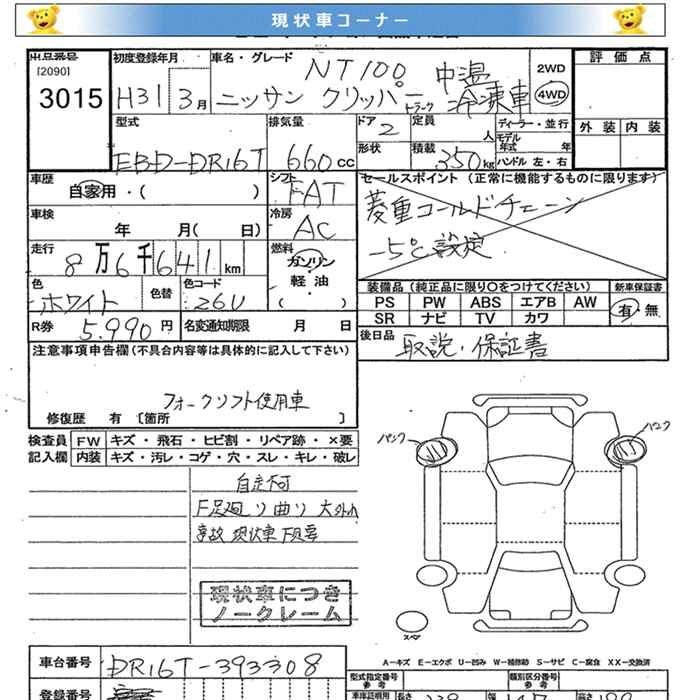 現状車コーナー
出品番号
[2090]
3015
初度登録年月
H31 3月
車名・グレード
NT100 中温
ニッサン クリッパー トラック 冷凍車
2WD
4WD
評価点
外装 内装
型式
EBD-DR16T
排気量
660cc
ドア
2
定員
人
ディーラー・並行
モデル年式 年
形状
積載
350kg
ハンドル 左・右
車歴
自家用・( )
シフト
FAT
車検
年 月( 日)
冷房
AC
走行
8万6千641km
燃料
ガソリン
軽油・
( )
色
ホワイト
色替
色コード
26U
R券
5,990円
名変通知期限 月 日
セールスポイント (正常に機能するものに限ります)
菱重コールドチェーン
-5℃設定
装備品(純正品に限り○をつけてください)
新車保証書
PS PW ABS エアB AW
SR ナビ TV カワ
有・無
後日品
取説・保証書
注意事項申告欄(不具合内容等は具体的に記入して下さい)
フォークリフト使用車
修復歴 有 [箇所 ]
検査員 FW キズ・飛石・ヒビ割・リペア跡・×要
記入欄 内装 キズ・汚レ・コゲ・穴・スレ・キレ・破レ
自走不可
F足廻り曲り 大外れ
事故現状車 下見要
現状車につき
ノークレーム
パンク
パンク
スペア
A-キズ E-エクボ U-凹み W-補修跡 S-サビ C-腐食 XX-交換済
車台番号
DR16T-393308
登録番号
型式指定番号
参考
類別区分番号
参考